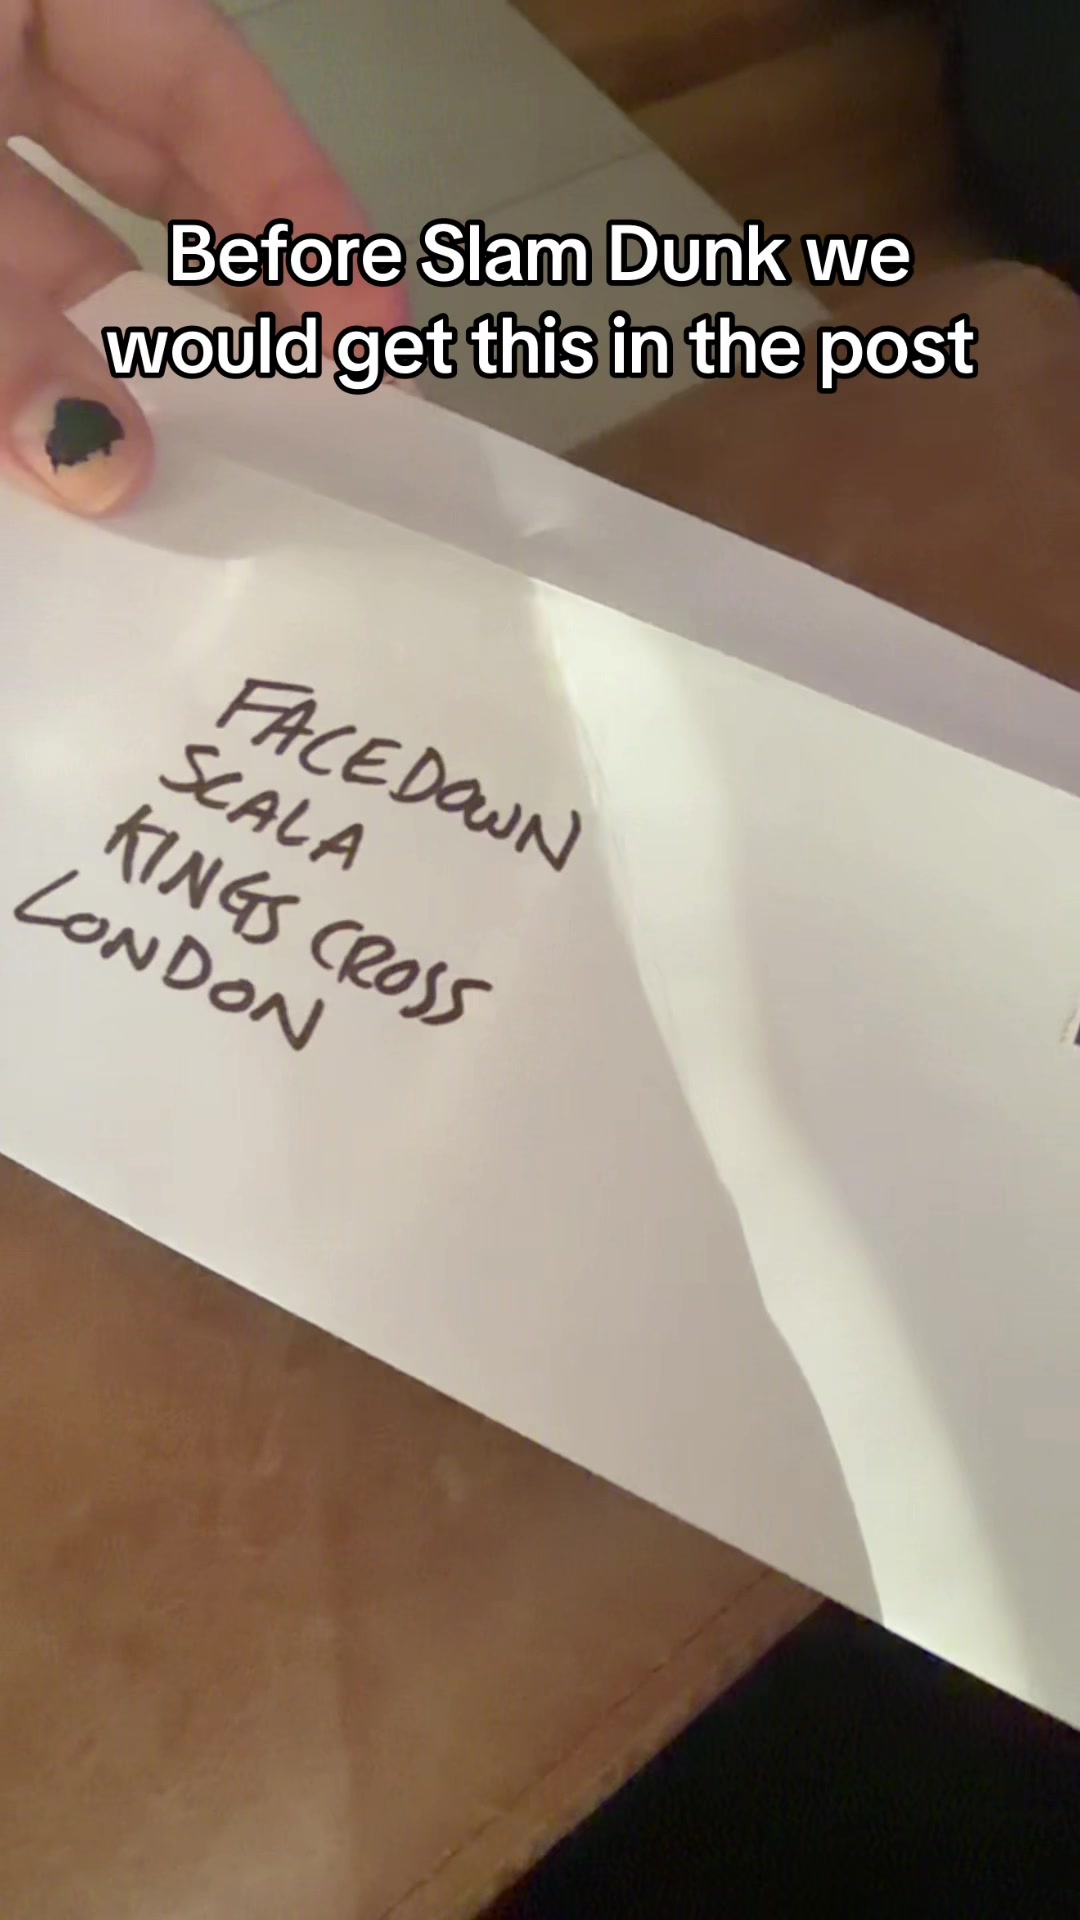 Before Slam Dunk we
would get this in the post
FACEDOWN
SCALA
KINGS CROSS
LONDON